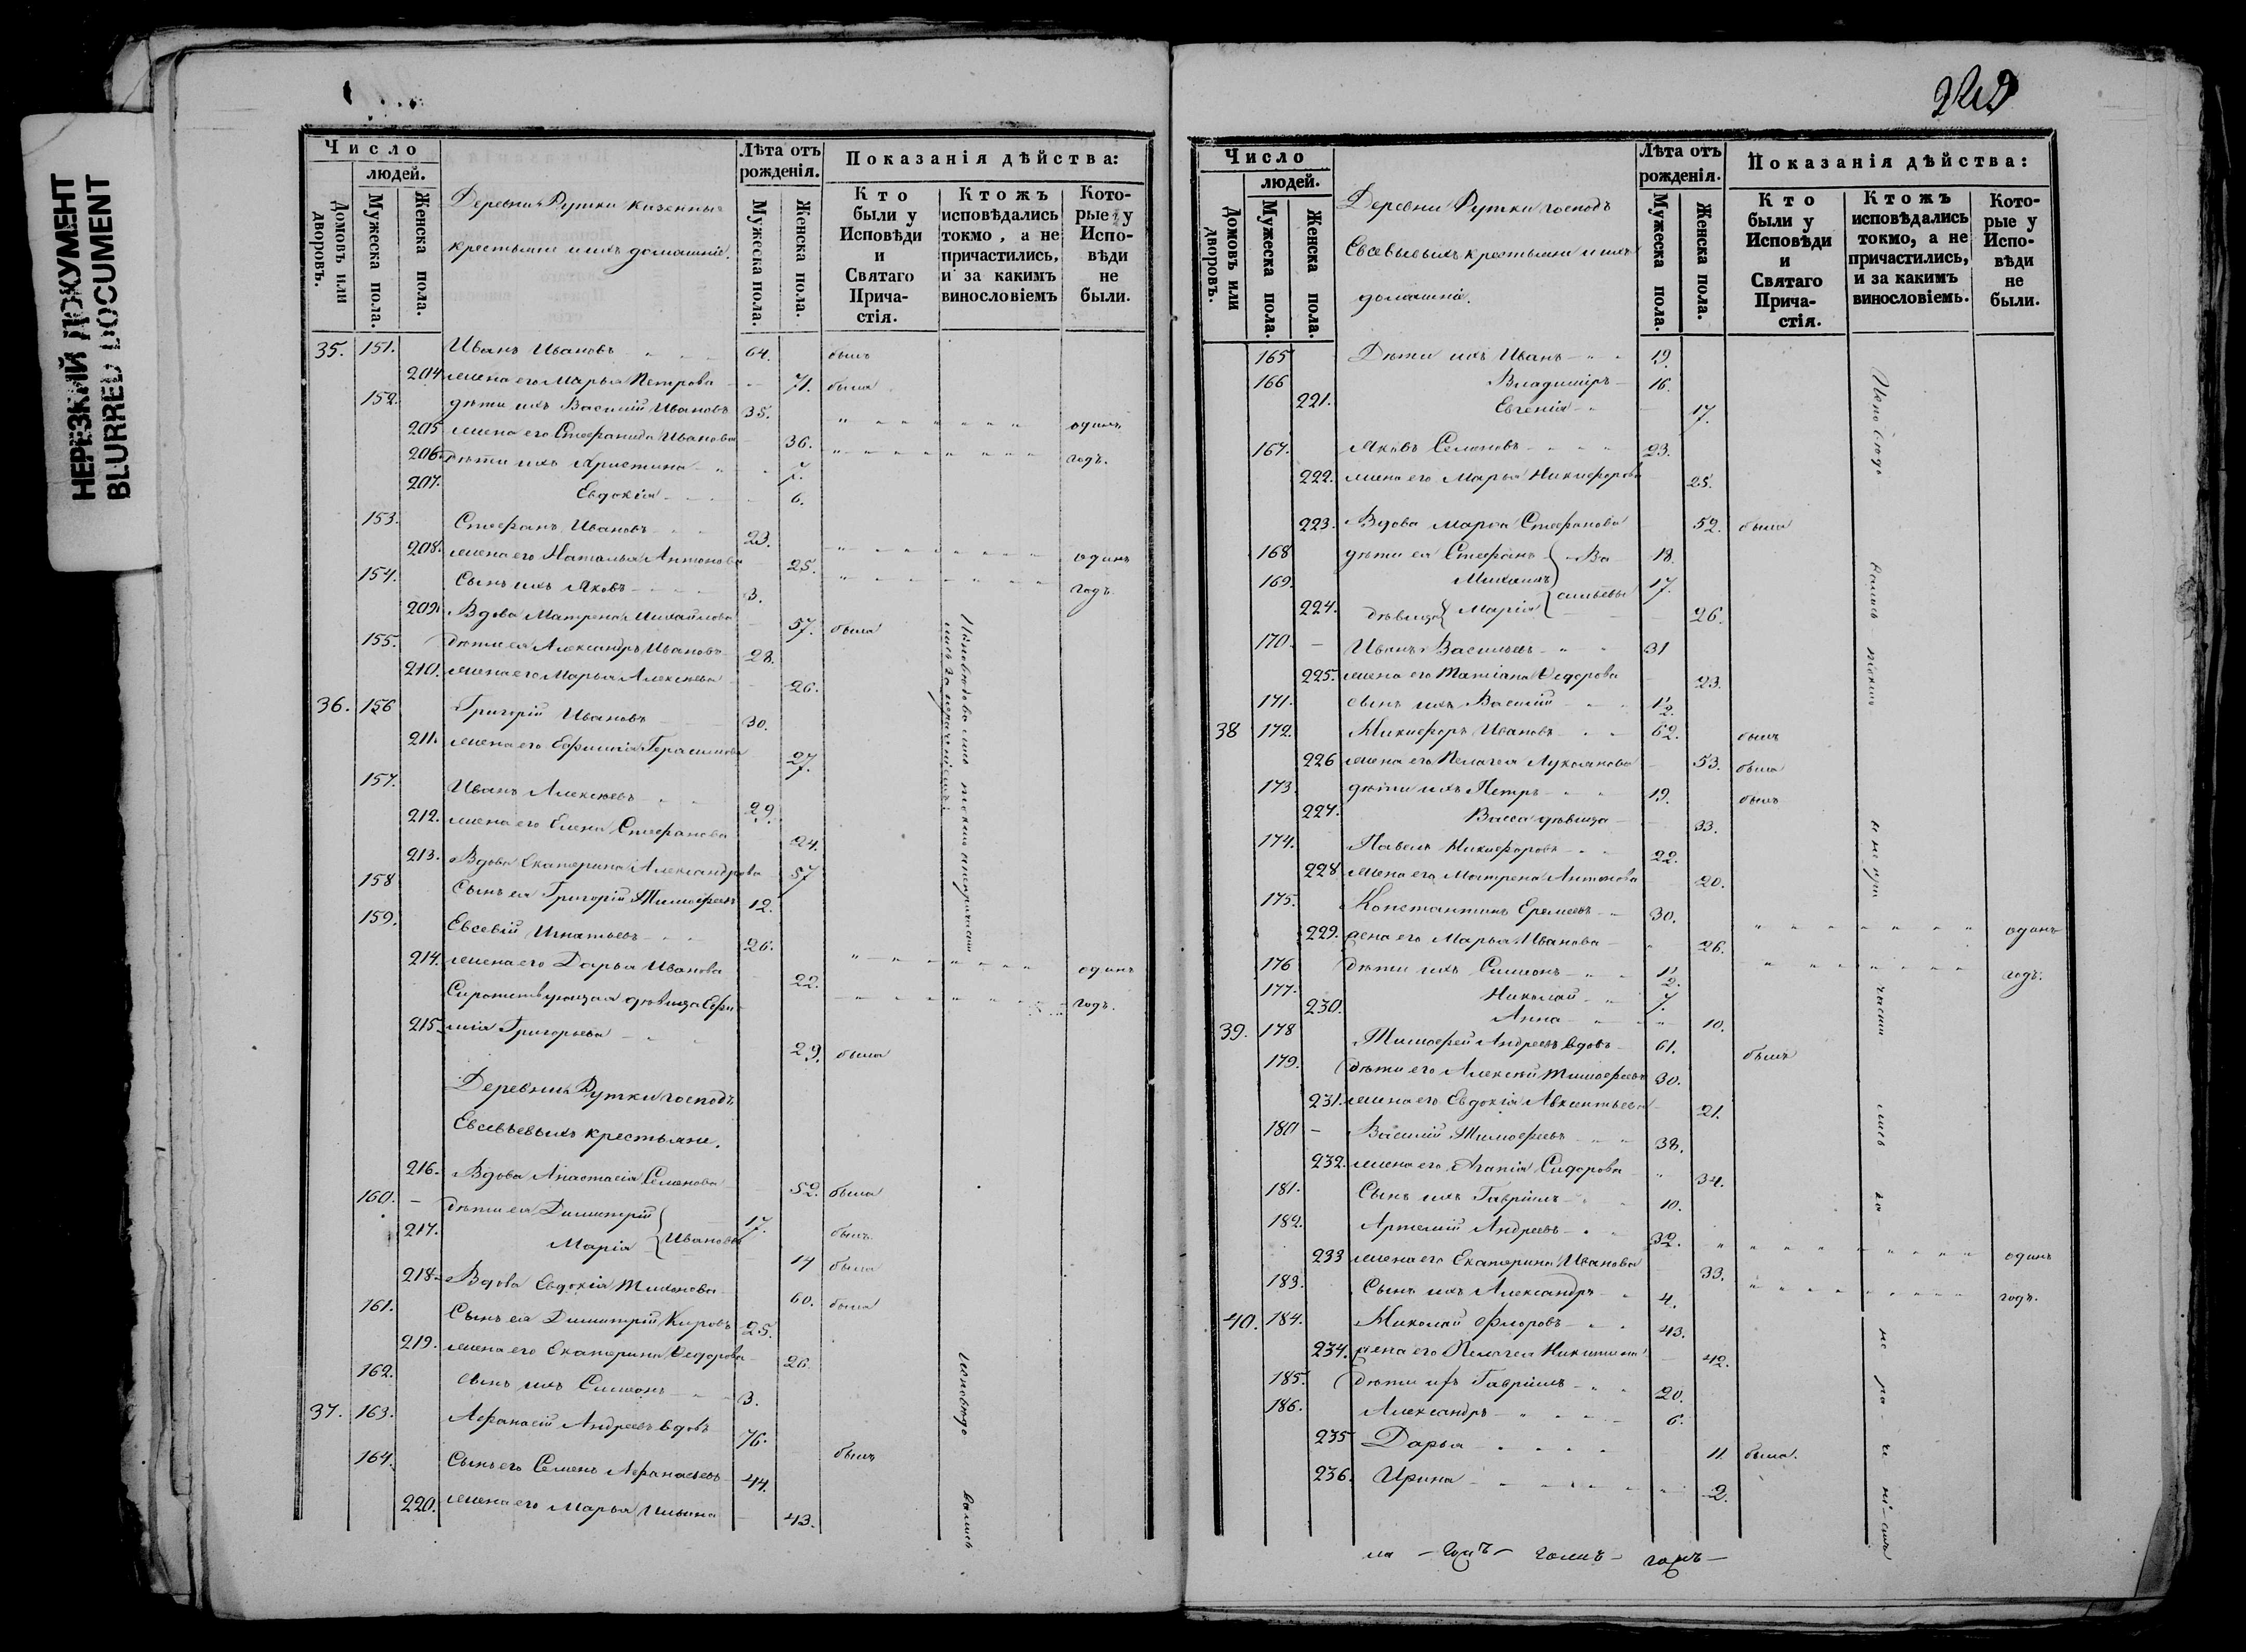 НЕРЕЗКИЙ ДОКУМЕНТ
BLURRED DOCUMENT
Число
людей.
Домовъ или дворовъ.
Мужеска пола.
Женска пола.
Деревни Рутки казенныя
крестьяне и ихъ домашніе.
Лѣта отъ рожденія.
Мужеска пола.
Женска пола.
Показанія дѣйства:
Кто были у Исповѣди и Святаго Прича-стія.
Ктожъ исповѣдались токмо, а не причастились, и за какимъ винословіемъ
Кото-рые у Испо-вѣди не были.
35. 151. Иванъ Ивановъ 64. былъ
204 жена его Марья Петрова 71. была
152. дѣти ихъ Василій Ивановъ 35. одинъ
205 жена его Стефанида Иванова 36. годъ.
206. дѣти ихъ Христина 7.
207. Евдокія 6.
153. Стефанъ Ивановъ 23. одинъ
208. жена его Наталья Антонова 25. годъ
154. Сынъ ихъ Яковъ 3.
209. Вдова Матрена Михайлова 57. была
155. Дѣти ея Александръ Ивановъ 28.
210. жена его Марья Алексѣева 26.
36. 156 Григорій Ивановъ 30.
211. жена его Евфимія Герасимова 27.
157. Иванъ Алексѣевъ 29.
212. жена его Елена Стефанова 24.
213. Вдова Екатерина Александрова 57
158 Сынъ ея Григорій Тимофеевъ 12.
159. Евсевій Игнатьевъ 26. одинъ
214. жена его Дарья Иванова 22. годъ.
Сиротствующая дѣвица Ефи-
215. мія Григорьева 29. была
Деревни Рутки господъ
Евсевьевыхъ крестьяне.
216. Вдова Анастасія Семенова 52. была
160. Дѣти ея Димитрій 17. былъ
217. Марія } Ивановы 14 была
218. Вдова Евдокія Тихонова 60. была
161. Сынъ ея Димитрій Кировъ 25.
219. жена его Екатерина Федорова 26.
162. сынъ ихъ Симеонъ 3.
37. 163. Афанасій Андреевъ вдовъ 76. былъ
164. Сынъ его Семенъ Афанасьевъ 44.
220. жена его Марья Ильина 43.
Исповѣдовались токмо а не причасти
Исповѣдо
вались
Число
людей.
Домовъ или дворовъ.
Мужеска пола.
Женска пола.
Деревни Рутки господъ
Евсевьевыхъ крестьяне и ихъ
домашніе.
Лѣта отъ рожденія.
Мужеска пола.
Женска пола.
Показанія дѣйства:
Кто были у Исповѣди и Святаго Прича-стія.
Ктожъ исповѣдались токмо, а не причастились, и за какимъ винословіемъ.
Кото-рые у Испо-вѣди не были.
165 Дѣти ихъ Иванъ 19.
166 Владиміръ 16.
221. Евгенія 17.
167. Яковъ Семеновъ 23.
222. жена его Марья Никифорова 25.
223. Вдова Марѳа Стефанова 52. была
168 дѣти ея Стефанъ } Ва 18.
169. Михаилъ 17.
224. дѣвица Марія } сильевы 26.
170. Иванъ Васильевъ 31
225. жена его Татіана Федорова 23.
171. сынъ ихъ Василій 1/2.
38 172. Никифоръ Ивановъ 62. былъ
226 жена его Пелагея Лукоянова 53. была
173. дѣти ихъ Петръ 19. былъ
227. Васса дѣвица 33.
174. Павелъ Никифоровъ 22.
228 жена его Матрена Антонова 20.
175. Константинъ Еремеевъ 30. одинъ
229. жена его Марья Иванова 26. годъ.
176 Дѣти ихъ Симеонъ 1/2.
177. Николай 7.
230. Анна 10.
39. 178 Тимофей Андреевъ вдовъ 61. былъ
179. Дѣти его Алексѣй Тимофеевъ 30.
231. жена его Евдокія Авксентьева 21.
180 Василій Тимофеевъ 38.
232. жена его Агапія Сидорова 34.
181. Сынъ ихъ Гавріилъ 10.
182. Артемій Андреевъ 32. одинъ
233 жена его Екатерина Иванова 33. годъ.
183. Сынъ ихъ Александръ 4.
40. 184. Николай Флоровъ 43.
234. жена его Пелагея Никитина 42.
185. Дѣти ихъ Гавріилъ 20.
186. Александръ 6.
235 Дарья 11 была.
236. Ирина 2.
Исповѣдо
вались токмо
а не при
части
лись
за
не
ра
че
ні-емъ